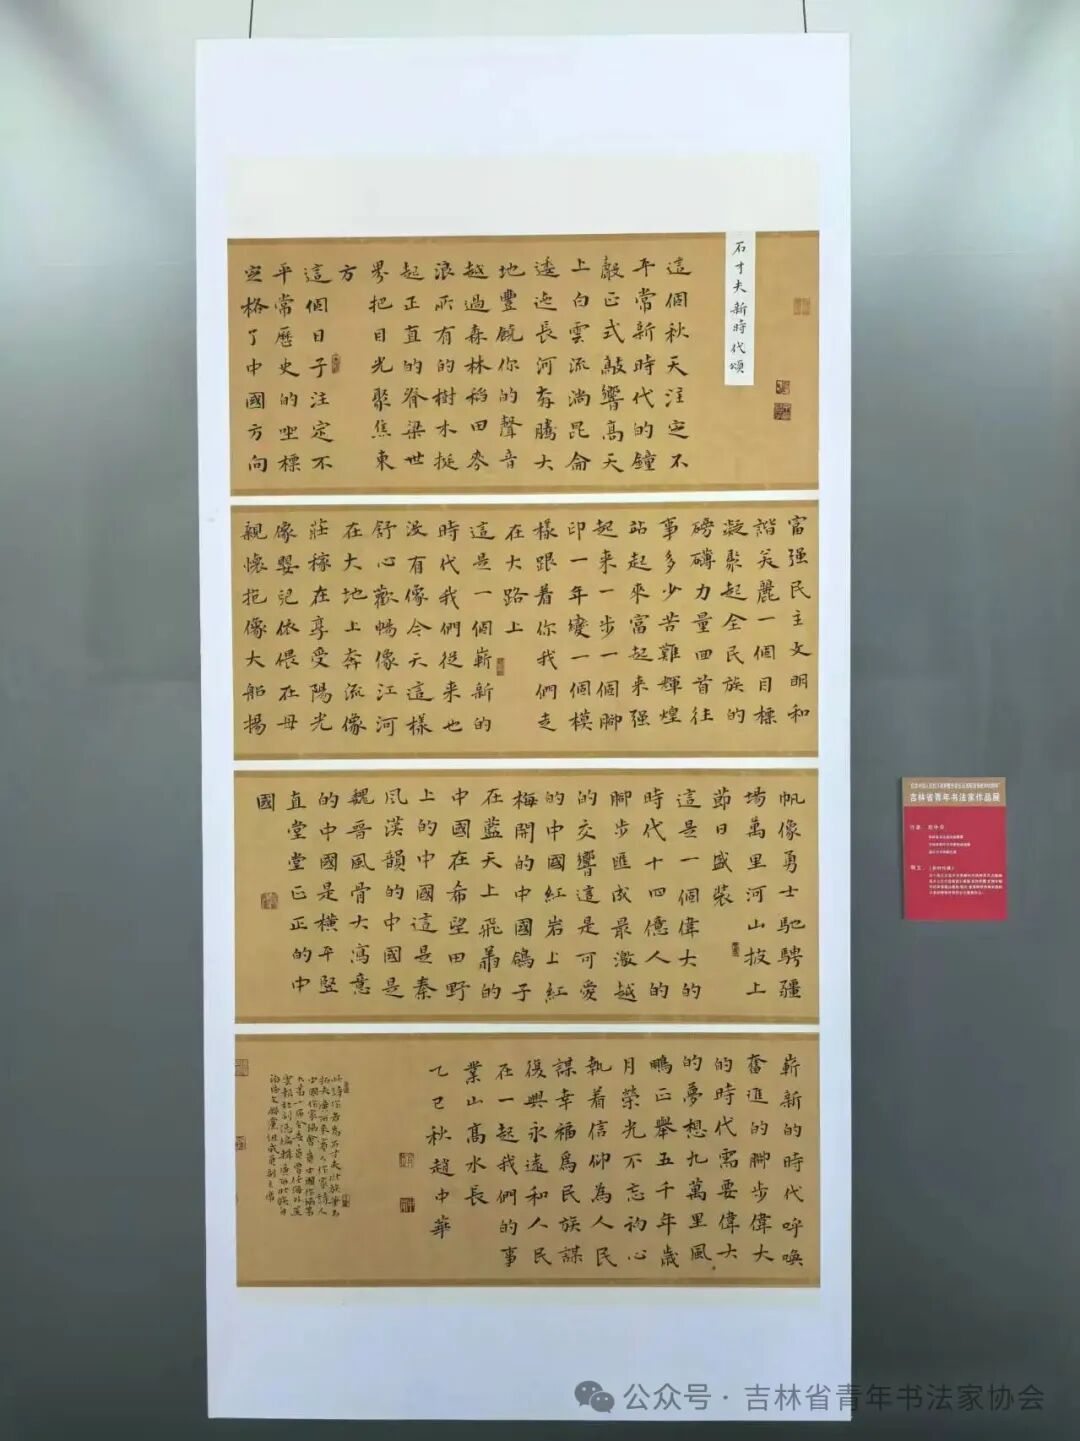 石寸夫新時代頌
這個秋天注定不
平常新時代的鐘
聲正式敲響高天
上白雲流淌昆侖
逶迤長河奔騰大
地豐饒你的聲音
越過森林稻田麥
浪所有的樹木挺
起正直的脊梁世
界把目光聚焦東
方
這個日子注定不
平常歷史的坐標
定格了中國方向
富强民主文明和
諧美麗一個目標
凝聚起全民族的
磅礴力量回首往
事多少苦難輝煌
站起來富起來强
起來一步一個腳
印一年變一個模
樣跟着你我們走
在大路上
這是一個嶄新的
時代我們從來也
没有像今天這樣
舒心歡暢像江河
在大地上奔流像
莊稼在享受陽光
像嬰兒依偎在母
親懷抱像大船揚
帆像勇士馳騁疆
場萬里河山披上
節日盛裝
這是一個偉大的
時代十四億人的
腳步匯成最激越
的交響這是可愛
的中國紅岩上紅
梅開的中國鴿子
在藍天上飛翔的
中國在希望田野
上的中國這是秦
風漢韻的中國是
魏晋風骨大寫意
的中國是橫平竪
直堂堂正正的中
國
嶄新的時代呼喚
奮進的腳步偉大
的時代需要偉大
的夢想九萬里風
鵬正舉五千年歲
月榮光不忘初心
執着信仰為人民
謀幸福爲民族謀
復興永遠和人民
在一起我們的事
業山高水長
乙巳秋趙中華
吉林省青年书法家作品展
公众号·吉林省青年书法家协会